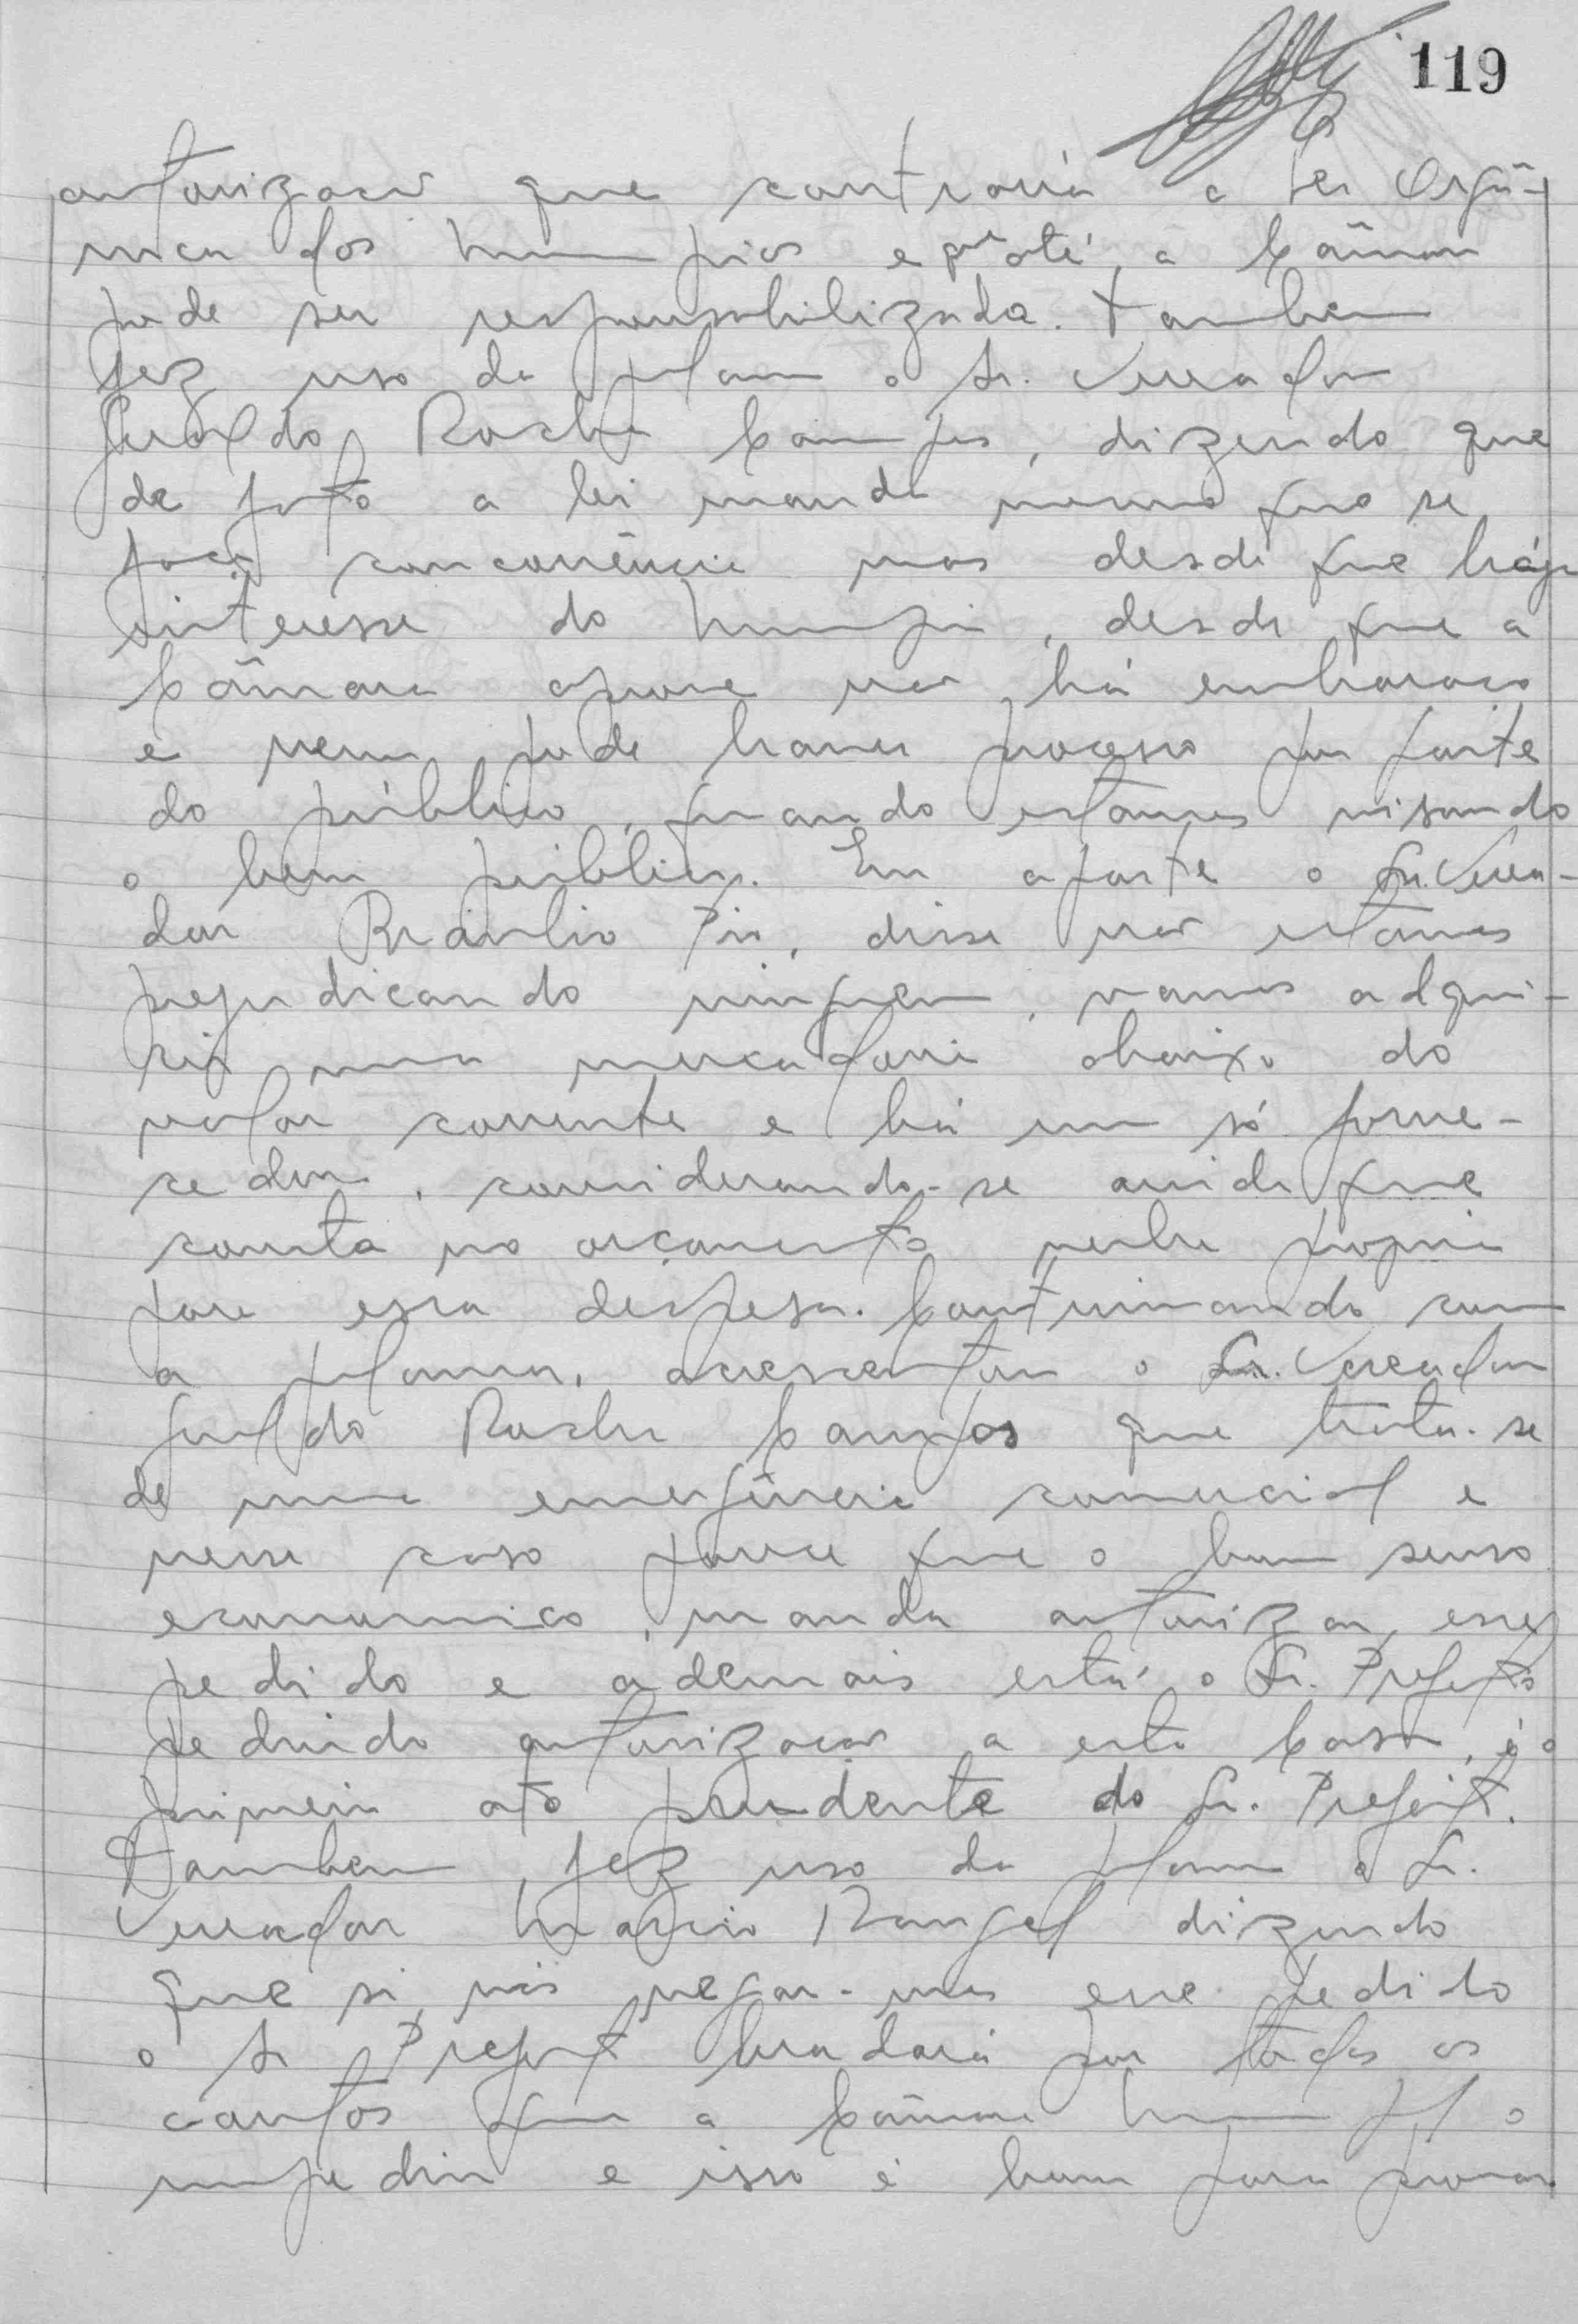 119
autorizacão que contraria a Lei Orgâ-
nica dos Municipios e que até, a Câmara
pode ser responsabilizada. Tambem
fez uso da palavra o Sr. Vereador
Geraldo Rocha Campos, dizendo que
de fato a lei manda mesmo que se
faça concorrência mas desde que haja
interesse do Municipio, desde que a
Câmara aprove não há embaraço
e nem pode haver processo por parte
do público, quando estamos visando
o bem público. Em aparte o Sr. Verea-
dor Braulio Pio, disse não estamos
prejudicando ninguem, vamos adqui-
rir uma mercadoria abaixo do
valor corrente e há um só forne-
cedor, considerando-se ainda que
consta no orçamento verba propria
para essa despesa. Continuando com
a palavra, acrescentou o Sr. Vereador
Geraldo Rocha Campos que trata-se
de uma emergência comercial e
nesse caso parece que o bom senso
economico, manda autorizar esse
pedido e ademais está o Sr. Prefeito
pedindo autorizacão a esta Casa, é o
primeiro ato prudente do Sr. Prefeito.
Tambem, fez uso da palavra o Sr.
Vereador Marcio Rangel dizendo
que si nós negar-mos esse pedido
o Sr Prefeito bradará por todos os
cantos que a Câmara Municipal o
impediu e isso é bom para provar